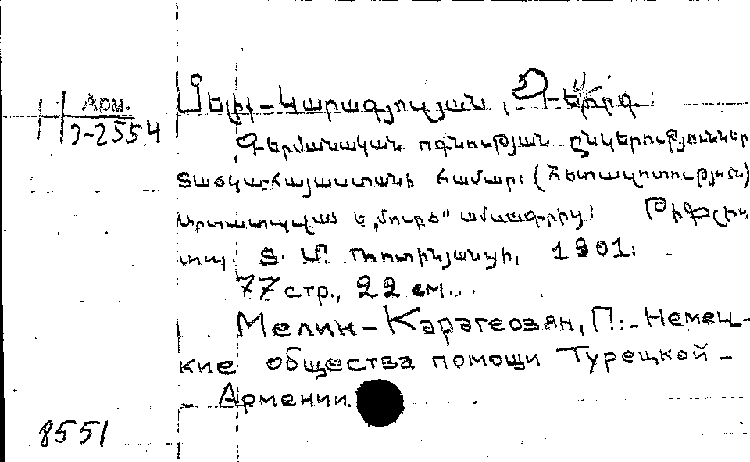 Арм.
Մելիք-Կարագյոզյան, Պ.
3-2554
Գերմանական օգնության ընկերություններ
Տաճկա-Հայաստանի համար: (Հետազոտություն)
Արտատպված է „Մուրճ“ ամսագրից: Թիֆլիս
տպ. Տ. Մ. Ռոտինյանցի, 1901:
77 стр., 22 см.
Мелик-Карагеозян, П.:-Немец-
кие общества помощи Турецкой-
- Армении.
8551